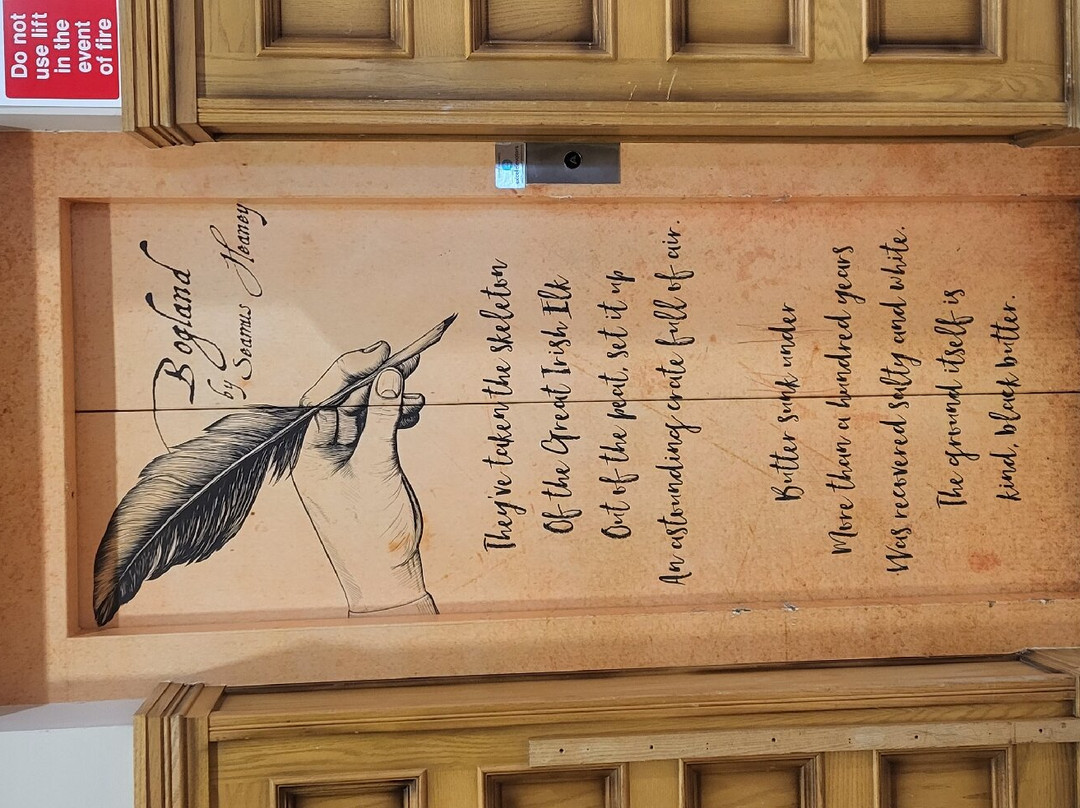 Do not
use lift
in the
event
of fire
Bogland
by Seamus Heaney
They've taken the skeleton
Of the Great Irish Elk
Out of the peat, set it up
An astounding crate full of air.
Butter sunk under
More than a hundred years
Was recovered salty and white.
The ground itself is
kind, black butter.